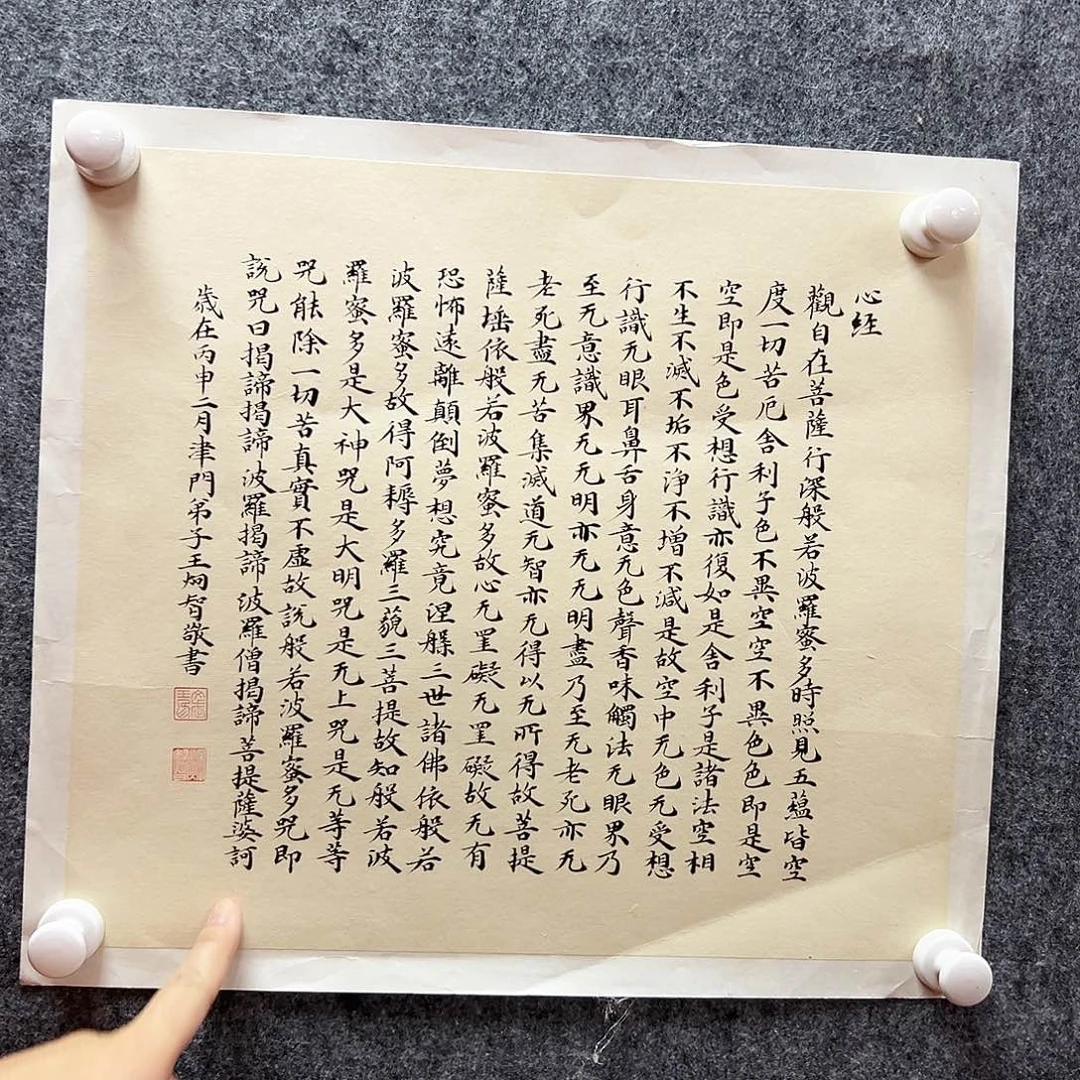 心经
觀自在菩薩行深般若波羅蜜多時照見五蘊皆空
度一切苦厄舍利子色不異空空不異色色即是空
空即是色受想行識亦復如是舍利子是諸法空相
不生不滅不垢不淨不增不減是故空中无色无受想
行識无眼耳鼻舌身意无色聲香味觸法无眼界乃
至无意識界无无明亦无无明盡乃至无老死亦无
老死盡无苦集滅道无智亦无得以无所得故菩提
薩埵依般若波羅蜜多故心无罣礙无罣礙故无有
恐怖遠離顛倒夢想究竟涅槃三世諸佛依般若
波羅蜜多故得阿耨多羅三藐三菩提故知般若波
羅蜜多是大神咒是大明咒是无上咒是无等等
咒能除一切苦真實不虛故說般若波羅蜜多咒即
說咒曰揭諦揭諦波羅揭諦波羅僧揭諦菩提薩婆訶
歲在丙申二月津門弟子王炯智敬書